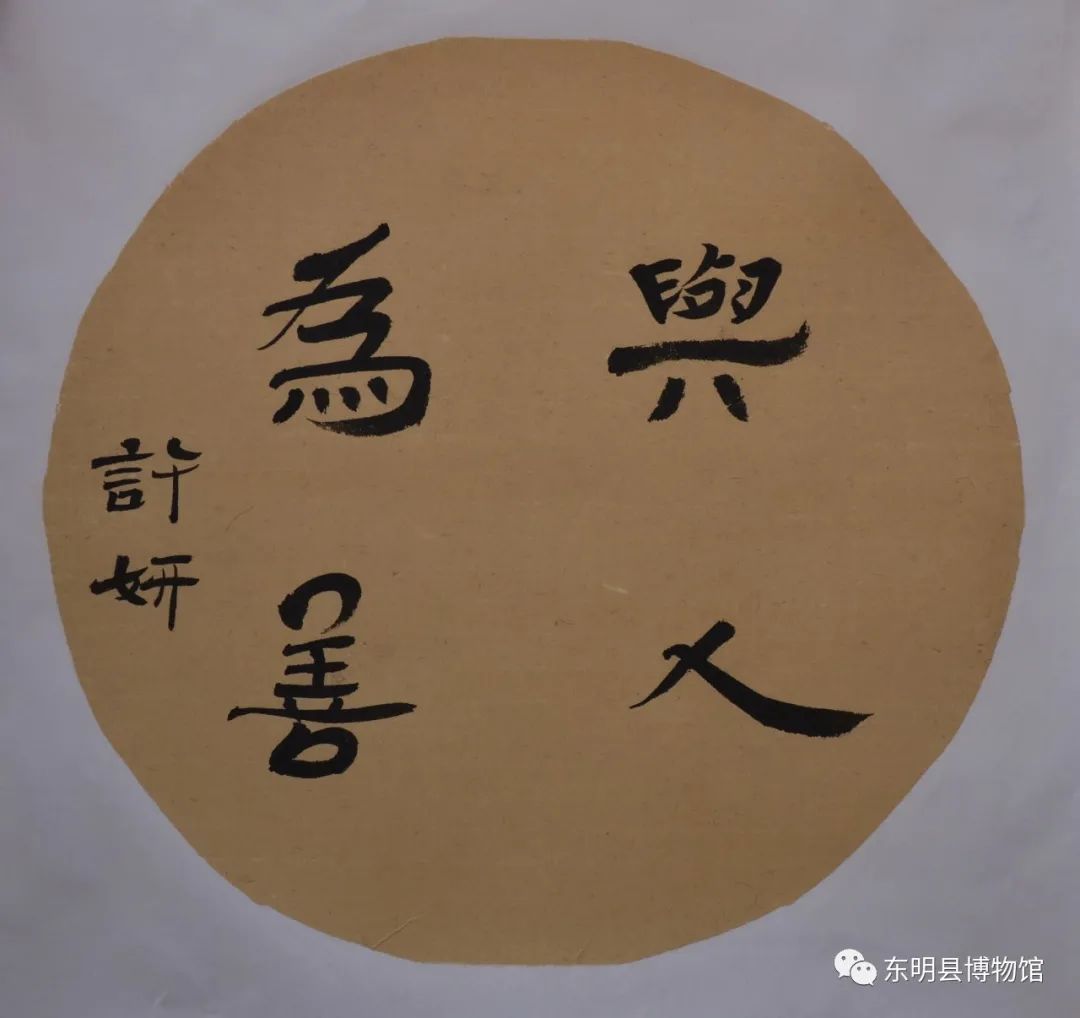 與人
為善
許妍
东明县博物馆